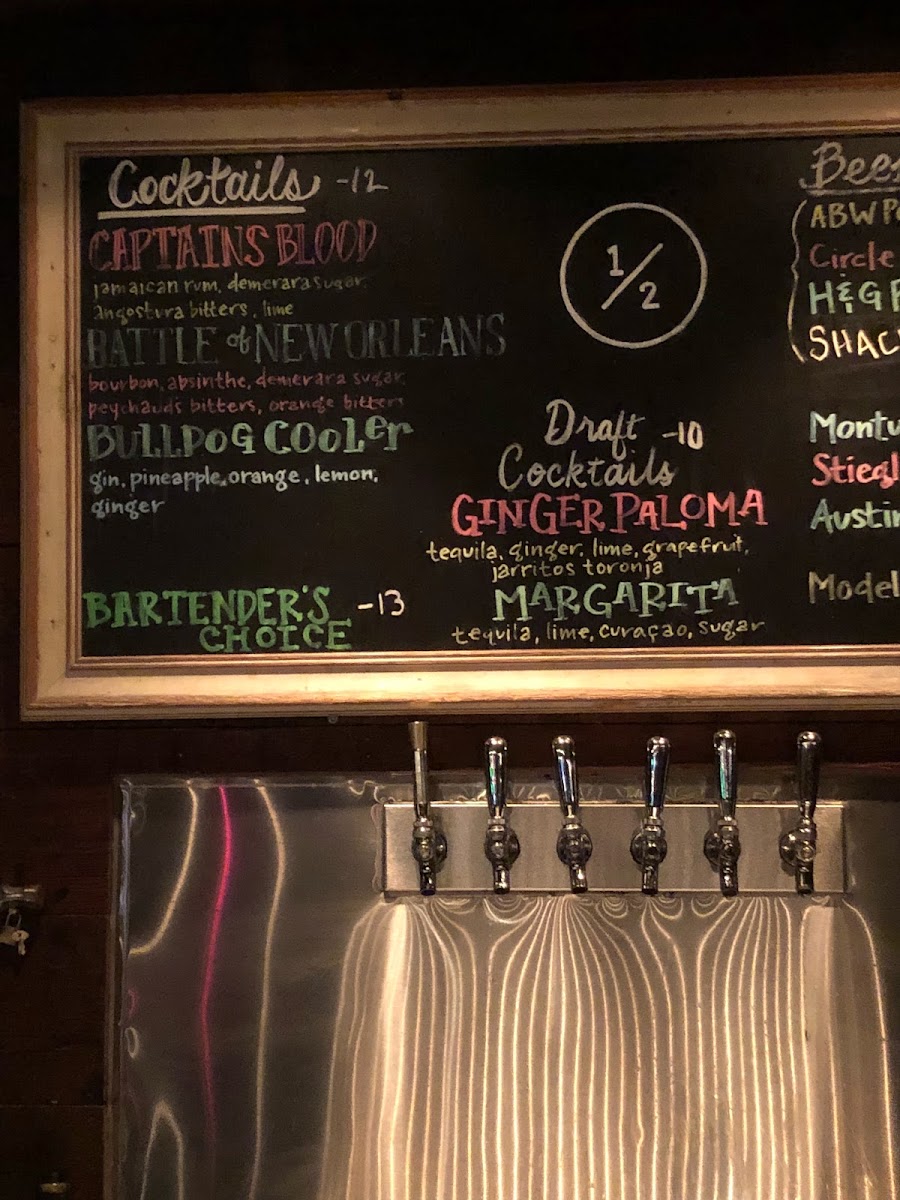 Cocktails -12
CAPTAINS BLOOD
jamaican rum, demerara sugar,
angostura bitters, lime
BATTLE of NEW ORLEANS
bourbon, absinthe, demerara sugar,
peychauds bitters, orange bitters
BULLDOG COOLER
gin, pineapple, orange, lemon,
ginger
BARTENDER'S -13
CHOICE
1/2
Draft -10
Cocktails
GINGER PALOMA
tequila, ginger, lime, grapefruit,
jarritos toronja
MARGARITA
tequila, lime, curaçao, sugar
ABW
Circle
H&G